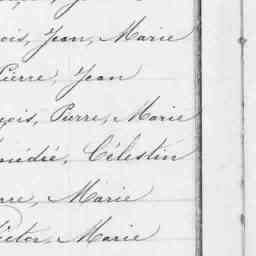 ois, Jean, Marie
Pierre, Jean
çois, Pierre, Marie
médié, Célestin
rre, Marie
ictor, Marie